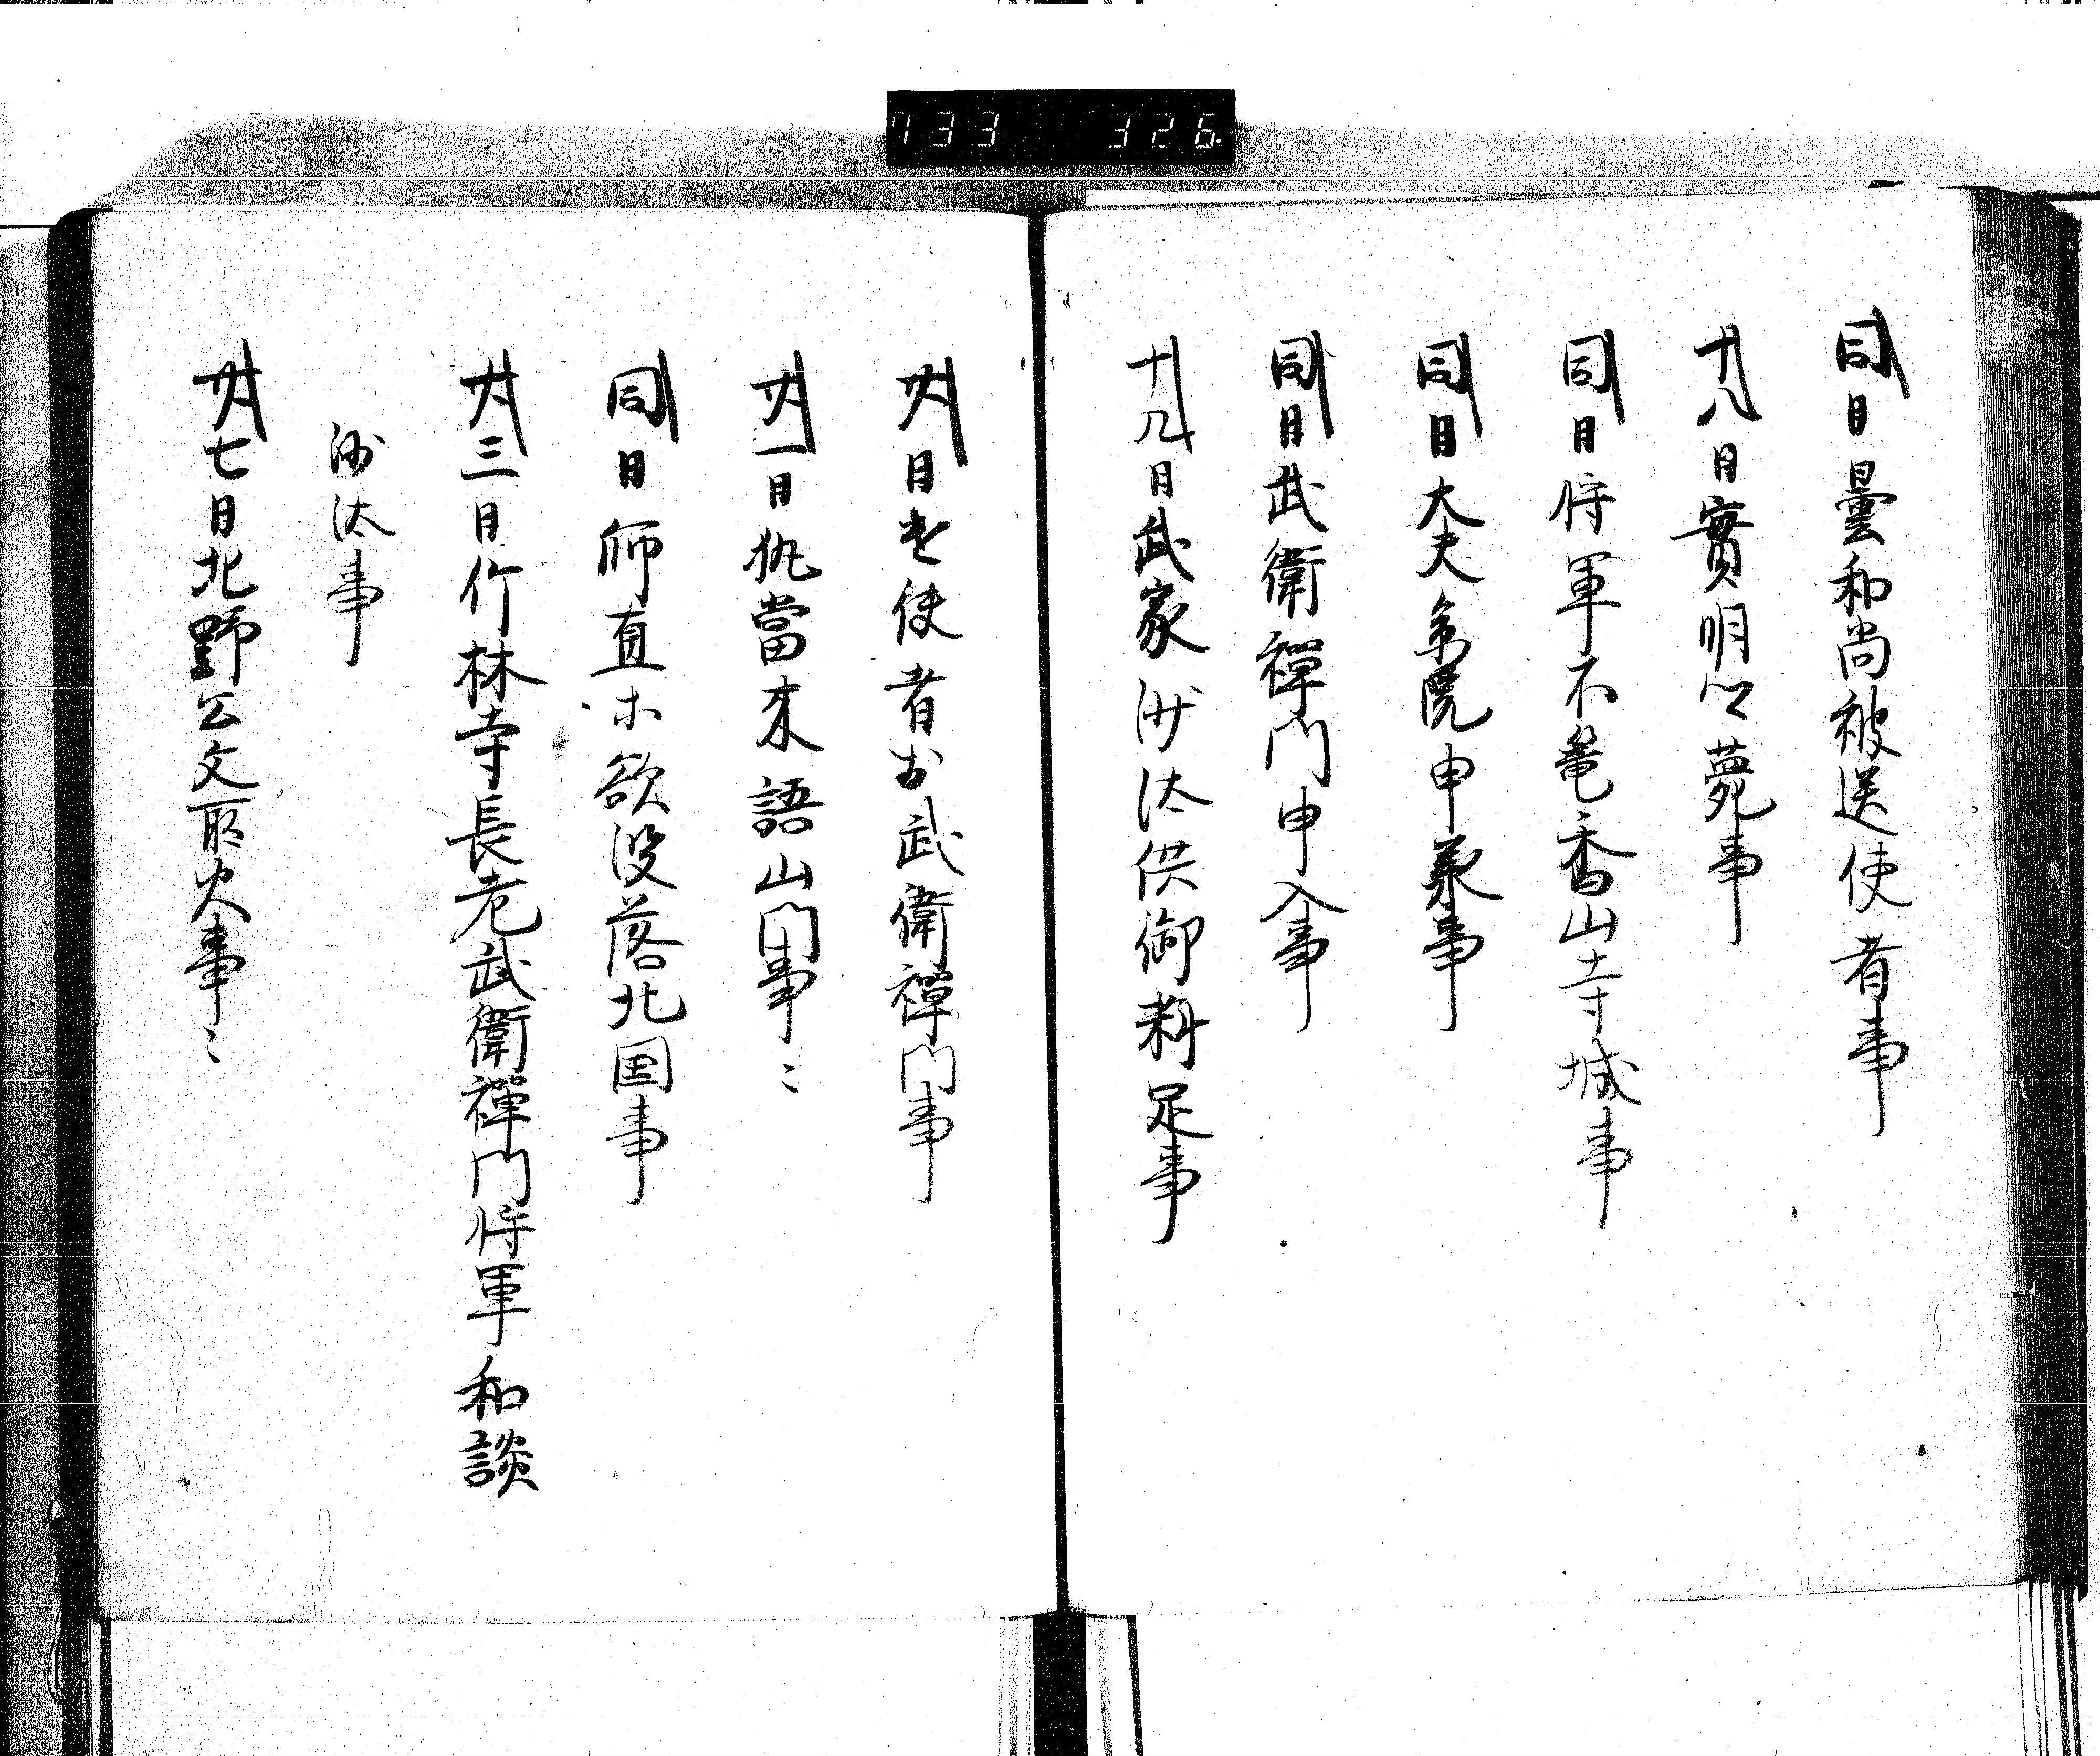 733 326
同日曇和尚被送使者事
十八日實明公薨事
同日将軍不篭香山寺城事
同日大夫多院申承事
同日武衛禅門申入事
十九日武家沙汰供御料足事
廿日遣使者於武衛禅門事
廿一日執當来語山門事〻
同日師直等欲没落北国事
廿三日竹林寺長老武衛禅門将軍和談
沙汰事
廿七日北野公文所火事〻